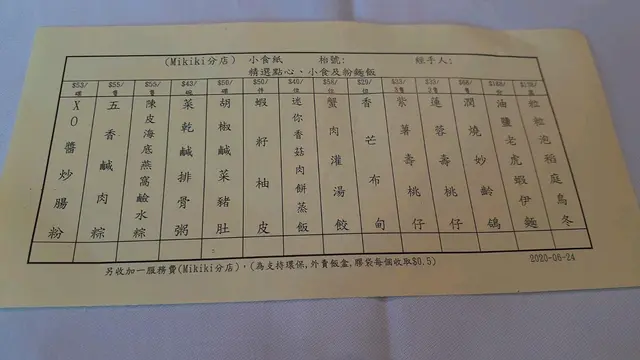 (Mikiki分店) 小食紙 枱號: 經手人:
精選點心、小食及粉麵飯
$53/碟 $55/隻 $55/隻 $43/碗 $50/碟 $50/件 $40/位 $58/位 $29/位
XO醬炒腸粉
五香鹹肉粽
陳皮海底燕窩鹼水粽
菜乾鹹排骨粥
胡椒鹹菜豬肚
蝦籽柚皮
迷你香菇肉餅蒸飯
蟹肉灌湯餃
香芒布甸
紫薯壽桃仔
蓮蓉壽桃仔
潤燒妙齡鴿
油鹽老虎蝦伊麵
粒粒泡稻庭烏冬
另收加一服務費(Mikiki分店), (為支持環保,外賣飯盒,膠袋每個收取$0.5)
2020-06-24